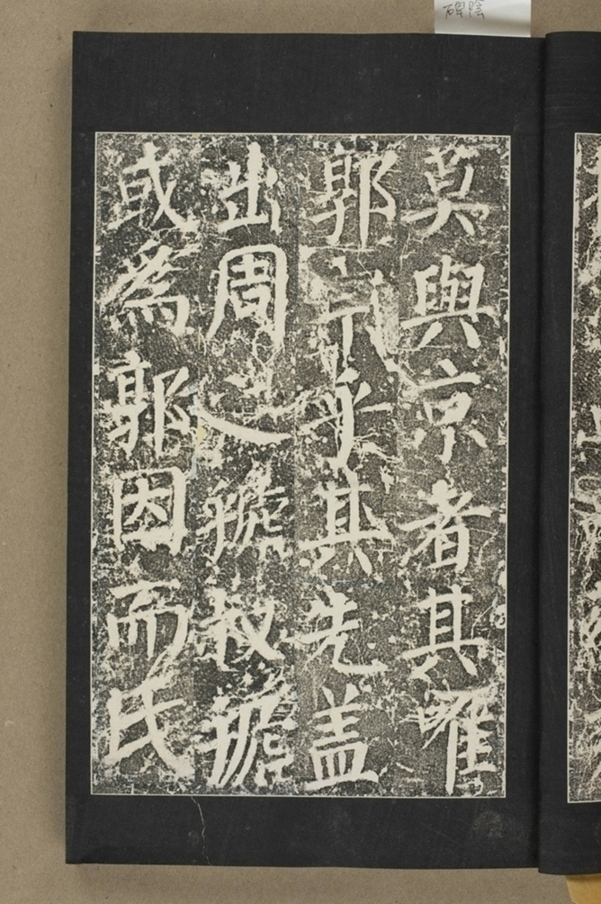 碑陰
莫與京者其唯
郭宗乎其先盖
出周之虢叔虢
或為郭因而氏